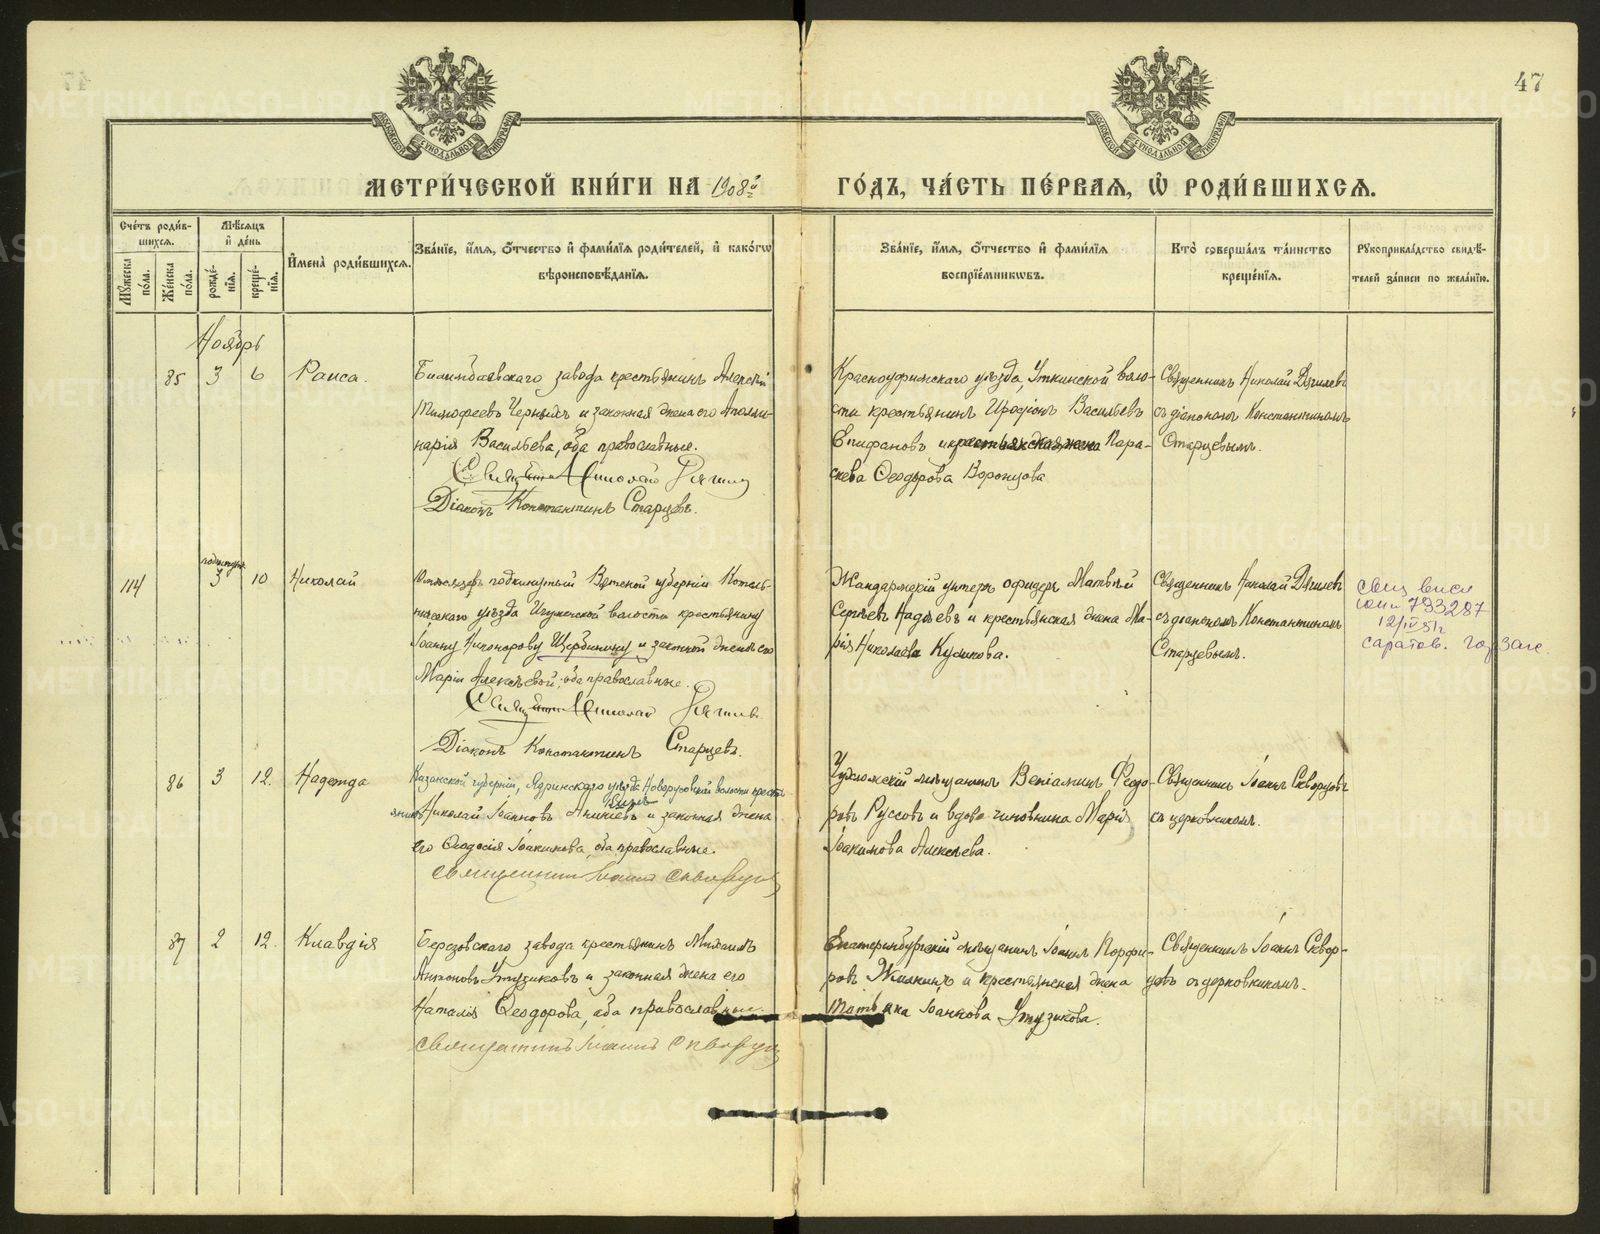 47
МОСКОВСКОЙ СѴНОДАЛЬНОЙ ТИПОГРАФІИ
МОСКОВСКОЙ СѴНОДАЛЬНОЙ ТИПОГРАФІИ
МЕТРИ́ЧЕСКОЙ КНИ́ГИ НА 1908й
ГО́ДЪ, ЧА́СТЬ ПЕ́РВАѦ, Ѽ РОДИ́ВШИХСѦ.
Сче́тъ роди́в-
шихсѧ.
Мѣ́сѧцъ
и҆ де́нь
Мꙋ́жеска по́ла.
Же́нска по́ла.
рожде́-
нїѧ.
креще́-
нїѧ.
И҆мена̀ роди́вшихсѧ.
Зва́нїе, и҆́мѧ, ѻ҆́тчество и҆ фами́лїѧ роди́телей, и҆ како́гѡ
вѣроисповѣ́данїѧ.
Зва́нїе, и҆́мѧ, ѻ҆́тчество и҆ фами́лїѧ
воспрїе́мникѡвъ.
Кто̀ соверша́лъ та́инство
креще́нїѧ.
Рꙋкоприкла́дство свидѣ́-
телей за́писи по жела́нїю.
Ноябрь
85 3 6 Раиса.
Билимбаевскаго завода крестьянинъ Алексѣй
Тимофеевъ Черныхъ и законная жена его Аполли-
нарія Васильева, оба православные.
Священникъ Николай Дягилевъ
Діаконъ Константинъ Старцевъ.
Красноуфимскаго уѣзда, Уткинской воло-
сти крестьянинъ Иродіонъ Васильевъ
Епифановъ и крестьянская жена Пара-
скева Ѳеодорова Воронцова
Священникъ Николай Дягилевъ
съ діакономъ Константиномъ
Старцевымъ.
114 подкинутъ 3 10 Николай
подкинутый Вятской губерніи Котель-
ническаго уѣзда волости крестьянину
Іоанну Никонорову Щербинину и законной женѣ его
Маріи Алексѣевой, оба православные.
Священникъ Николай Дягилевъ
Діаконъ Константинъ Старцевъ.
Жандармскій унтеръ офицеръ Матвѣй
Сергѣевъ Надѣевъ и крестьянская жена Ма-
рія Николаева Куликова.
Священникъ Николай Дягилевъ
съ діакономъ Константиномъ
Старцевымъ.
733287
12/IV 51г
Саратов. Горзагс
86 3 12. Надежда
Казанской губерніи, Ядринскаго уѣзда волости крестья-
янинъ Николай Іоанновъ и законная жена
его Ѳеодосія Іоакимова, оба православные.
Священникъ Іоаннъ Скворцовъ
Чухломскій мѣщанинъ Веніаминъ Ѳедо-
ровъ Руссовъ и вдова чиновника Марія
Іоакимова Алексѣева.
Священникъ Іоаннъ Скворцовъ
съ церковникомъ.
87 2 12. Клавдія
Березовскаго завода крестьянинъ Михаилъ
Антоновъ Утузиковъ и законная жена его
Наталія Ѳеодорова, оба православные.
Священникъ Іоаннъ Скворцовъ
Екатеринбургскій мѣщанинъ Іоаннъ Порфи-
ровъ Жилкинъ и крестьянская жена
Татьяна Іоаннова Утузикова.
Священникъ Іоаннъ Сквор-
цовъ съ церковникомъ.
METRIKI.GASO-URAL.RU